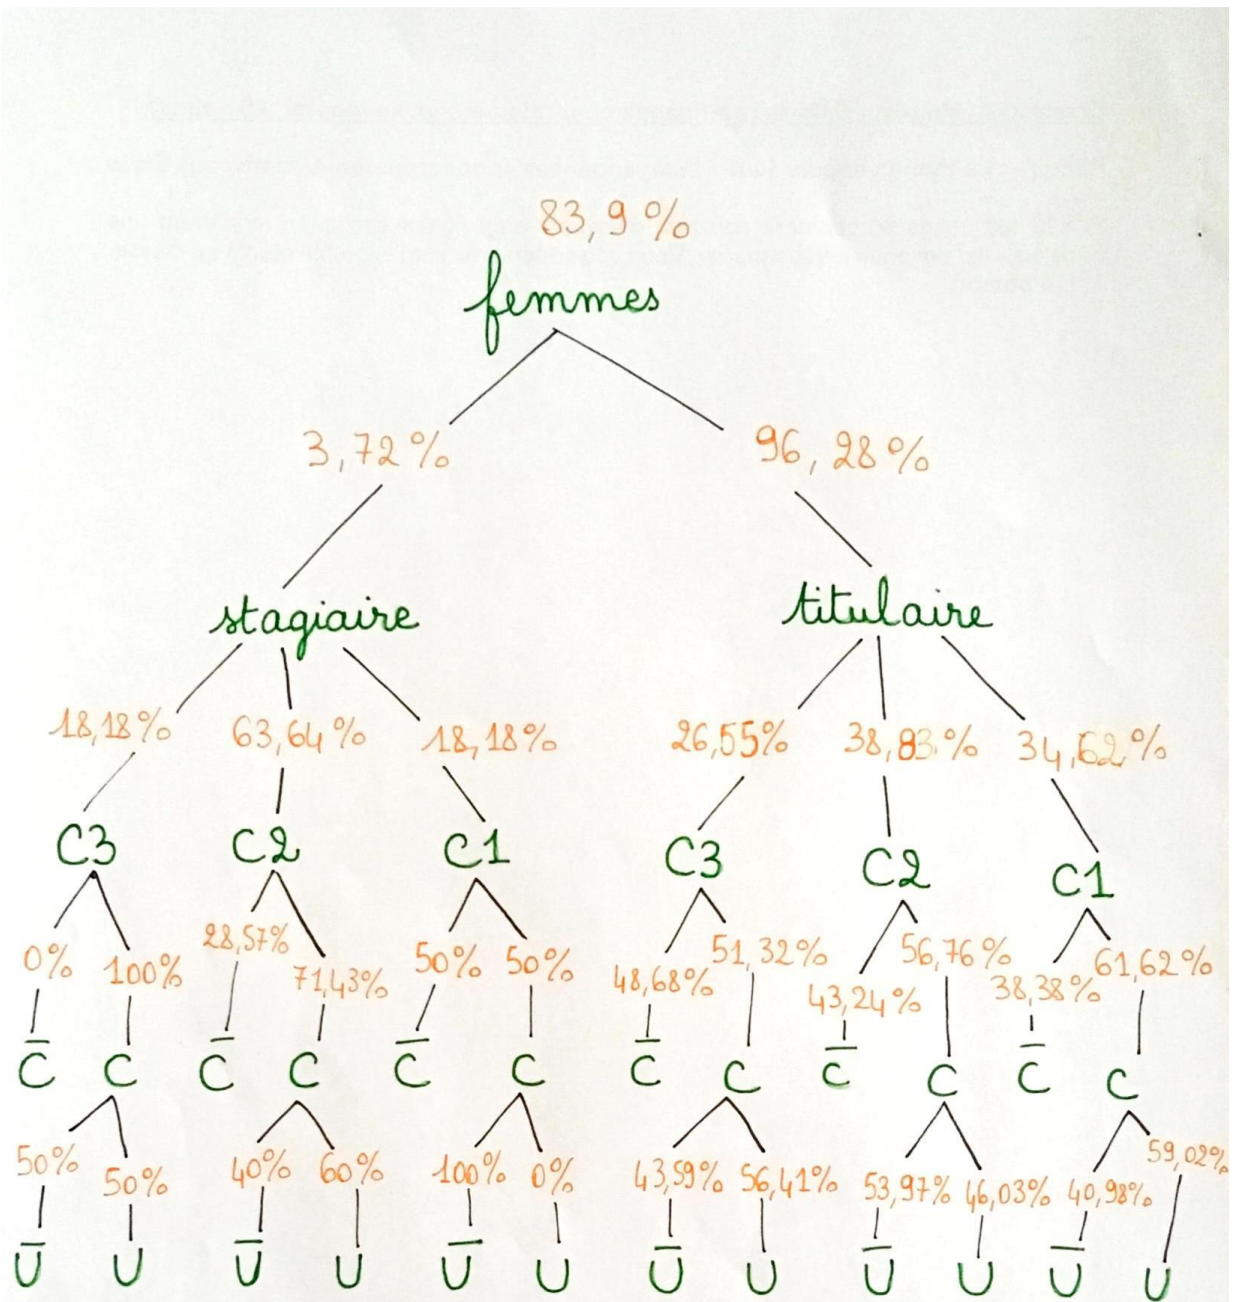 83,9%
femmes
3,72% 96,28%
stagiaire titulaire
18,18% 63,64% 18,18% 26,55% 38,83% 34,62%
C3 C2 C1 C3 C2 C1
0% 100% 28,57% 71,43% 50% 50% 48,68% 51,32% 43,24% 56,76% 38,38% 61,62%
C̅ C C̅ C C̅ C C̅ C C̅ C C̅ C
50% 50% 40% 60% 100% 0% 43,59% 56,41% 53,97% 46,03% 40,98% 59,02%
U̅ U U̅ U U̅ U U̅ U U̅ U U̅ U